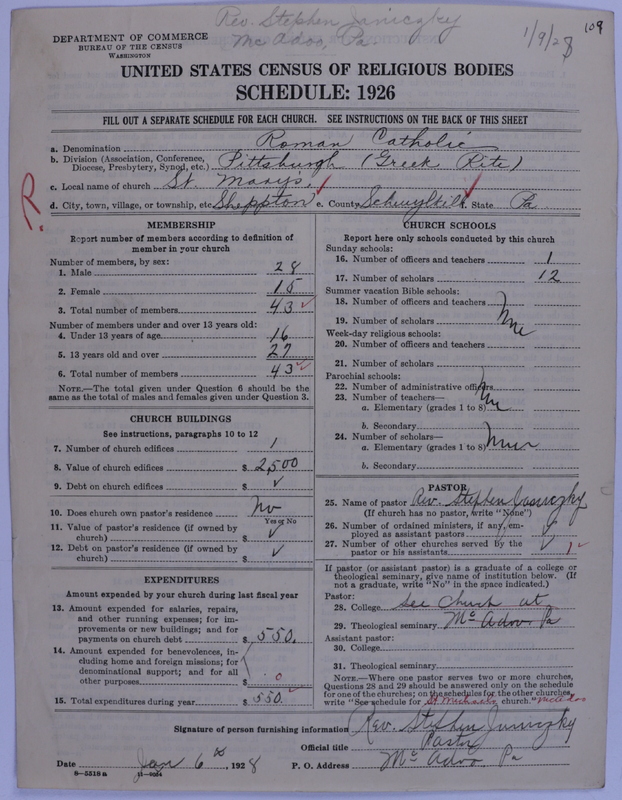 Rev. Stephen Janiczky
Mc Adoo, Pa.
1/9/28
109
DEPARTMENT OF COMMERCE
BUREAU OF THE CENSUS
WASHINGTON
UNITED STATES CENSUS OF RELIGIOUS BODIES
SCHEDULE: 1926
FILL OUT A SEPARATE SCHEDULE FOR EACH CHURCH. SEE INSTRUCTIONS ON THE BACK OF THIS SHEET
a. Denomination Roman Catholic
b. Division (Association, Conference, Diocese, Presbytery, Synod, etc.) Pittsburgh (Greek Rite)
c. Local name of church St. Mary's,
d. City, town, village, or township, etc. Sheppton e. County Schuylkill f. State Pa
R
MEMBERSHIP
Report number of members according to definition of
member in your church
Number of members, by sex:
1. Male 28
2. Female 15
3. Total number of members 43
Number of members under and over 13 years old:
4. Under 13 years of age 16
5. 13 years old and over 27
6. Total number of members 43
NOTE.—The total given under Question 6 should be the
same as the total of males and females given under Question 3.
CHURCH BUILDINGS
See instructions, paragraphs 10 to 12
7. Number of church edifices 1
8. Value of church edifices $ 2,500
9. Debt on church edifices $ ✓
10. Does church own pastor's residence No
Yes or No
11. Value of pastor's residence (if owned by
church) $ ✓
12. Debt on pastor's residence (if owned by
church) $ ✓
EXPENDITURES
Amount expended by your church during last fiscal year
13. Amount expended for salaries, repairs,
and other running expenses; for im-
provements or new buildings; and for
payments on church debt $ 550.
14. Amount expended for benevolences, in-
cluding home and foreign missions; for
denominational support; and for all
other purposes $ 0
15. Total expenditures during year $ 550.
CHURCH SCHOOLS
Report here only schools conducted by this church
Sunday schools:
16. Number of officers and teachers 1
17. Number of scholars 12
Summer vacation Bible schools:
18. Number of officers and teachers
19. Number of scholars
Week-day religious schools:
20. Number of officers and teachers
21. Number of scholars
Parochial schools:
22. Number of administrative officers
23. Number of teachers—
a. Elementary (grades 1 to 8)
b. Secondary
24. Number of scholars—
a. Elementary (grades 1 to 8)
b. Secondary
PASTOR
25. Name of pastor Rev. Stephen Janiczky
(If church has no pastor, write "None")
26. Number of ordained ministers, if any, em-
ployed as assistant pastors ✓
27. Number of other churches served by the
pastor or his assistants 1
If pastor (or assistant pastor) is a graduate of a college or
theological seminary, give name of institution below. (If
not a graduate, write "No" in the space indicated.)
Pastor:
28. College See Church at
29. Theological seminary Mc Adoo Pa
Assistant pastor:
30. College
31. Theological seminary
NOTE.—Where one pastor serves two or more churches,
Questions 28 and 29 should be answered only on the schedule
for one of the churches; on the schedules for the other churches,
write "See schedule for St Michaels church." McAdoo
Signature of person furnishing information Rev. Stephen Janiczky
Official title Pastor
Date Jan 6th, 1928 P. O. Address Mc Adoo Pa
8—5518a 11—9054